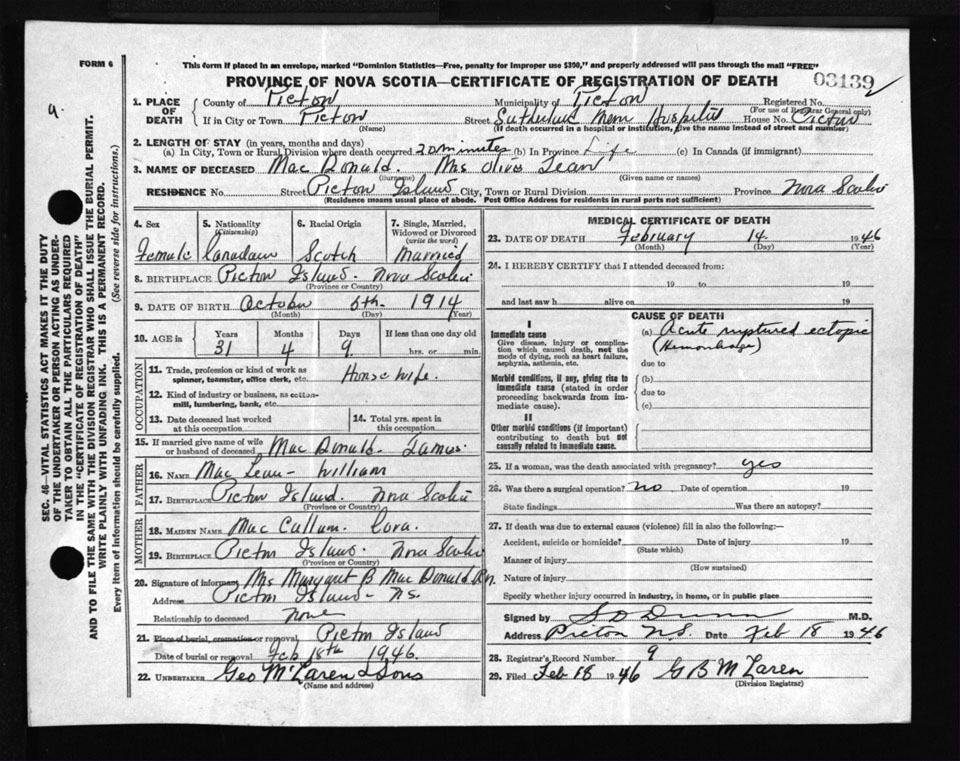 FORM 6
This form if placed in an envelope, marked "Dominion Statistics—Free, penalty for improper use $300," and properly addressed will pass through the mail "FREE"
PROVINCE OF NOVA SCOTIA—CERTIFICATE OF REGISTRATION OF DEATH 03139
9.
1. PLACE OF DEATH County of Pictou Municipality of Pictou Registered No.
(For use of Registrar General only)
If in City or Town Pictou Street Sutherland Mem Hospital House No. Pictou
(Name) (If death occurred in a hospital or institution, give the name instead of street and number)
2. LENGTH OF STAY (in years, months and days)
(a) In City, Town or Rural Division where death occurred 20 minutes (b) In Province Life (c) In Canada (if immigrant)
3. NAME OF DECEASED Mac Donald. Mrs Olive Jean
(Surname) (Given name or names)
RESIDENCE No. Street Pictou Island City, Town or Rural Division Province Nova Scotia
(Residence means usual place of abode. Post Office Address for residents in rural parts not sufficient)
4. Sex 5. Nationality (Citizenship) 6. Racial Origin 7. Single, Married, Widowed or Divorced (write the word)
Female Canadian Scotch Married
8. BIRTHPLACE Pictou Island. Nova Scotia
(Province or Country)
9. DATE OF BIRTH October 5th. 1914
(Month) (Day) (Year)
10. AGE in Years Months Days If less than one day old
31 4 9 hrs. or min.
OCCUPATION
11. Trade, profession or kind of work as spinner, teamster, office clerk, etc. House wife.
12. Kind of industry or business, as cotton-mill, lumbering, bank, etc.
13. Date deceased last worked at this occupation
14. Total yrs. spent in this occupation
15. If married give name of wife or husband of deceased Mac Donald. James.
FATHER
16. NAME Mac Lean - William
17. BIRTHPLACE Pictou Island. Nova Scotia
(Province or Country)
MOTHER
18. MAIDEN NAME Mac Callum. Cora.
19. BIRTHPLACE Pictou Island. Nova Scotia
(Province or Country)
20. Signature of informant Ms Margaret B Mac Donald. Rn.
Address Pictou Island - N.S.
Relationship to deceased None
21. Place of burial, cremation or removal Pictou Island
Date of burial or removal Feb 18th 1946.
22. UNDERTAKER Geo McLaren & Sons
(Name and address)
MEDICAL CERTIFICATE OF DEATH
23. DATE OF DEATH February 14. 1946
(Month) (Day) (Year)
24. I HEREBY CERTIFY that I attended deceased from:
19 to 19
and last saw h alive on 19
CAUSE OF DEATH
I
Immediate cause
Give disease, injury or complication which caused death, not the mode of dying, such as heart failure, asphyxia, asthenia, etc.
(a) Acute ruptured ectopic
(Hemorrhage)
due to
Morbid conditions, if any, giving rise to immediate cause (stated in order proceeding backwards from immediate cause).
(b)
due to
(c)
II
Other morbid conditions (if important) contributing to death but not causally related to immediate cause.
25. If a woman, was the death associated with pregnancy? yes
26. Was there a surgical operation? no Date of operation 19
State findings Was there an autopsy?
27. If death was due to external causes (violence) fill in also the following:—
Accident, suicide or homicide? Date of injury 19
(State which)
Manner of injury
(How sustained)
Nature of injury
Specify whether injury occurred in industry, in home, or in public place
Signed by M.D.
Address Pictou N.S. Date Feb 18 1946
28. Registrar's Record Number 9
29. Filed Feb 18 1946 G B McLaren
(Division Registrar)
SEC. 46—VITAL STATISTICS ACT MAKES IT THE DUTY
OF THE UNDERTAKER OR PERSON ACTING AS UNDER-
TAKER TO OBTAIN ALL THE PARTICULARS REQUIRED
IN THE "CERTIFICATE OF REGISTRATION OF DEATH"
AND TO FILE THE SAME WITH THE DIVISION REGISTRAR WHO SHALL ISSUE THE BURIAL PERMIT.
WRITE PLAINLY WITH UNFADING INK. THIS IS A PERMANENT RECORD.
Every item of information should be carefully supplied. (See reverse side for instructions.)